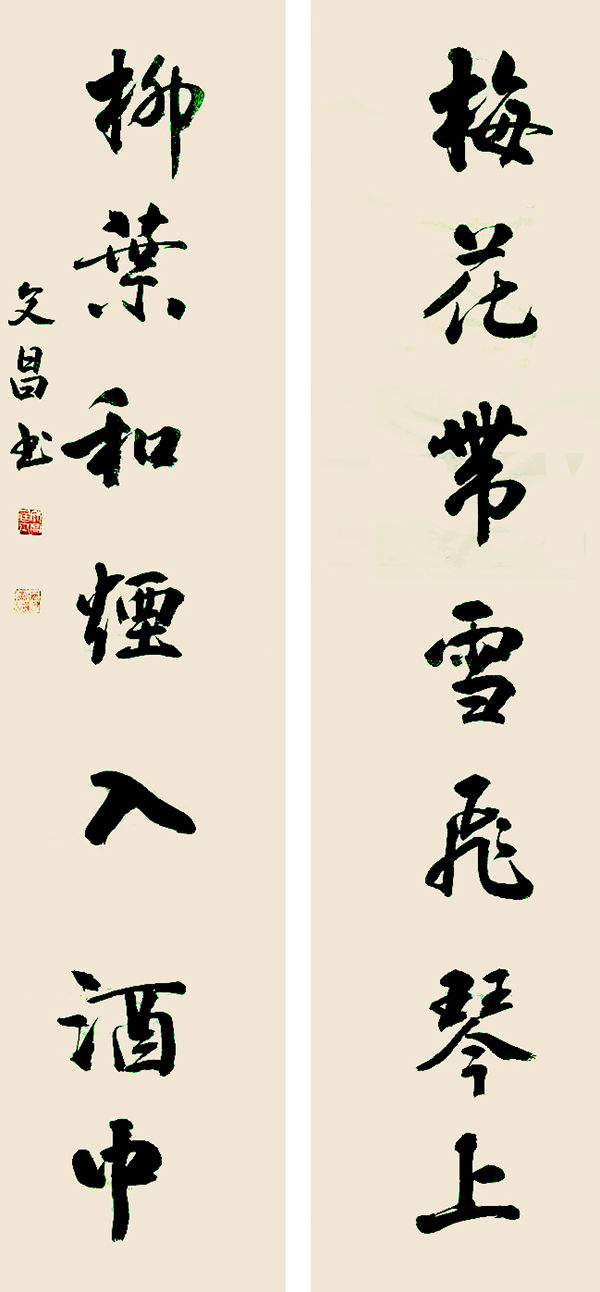 梅花帶雪飛琴上
柳葉和煙入酒中
文昌书